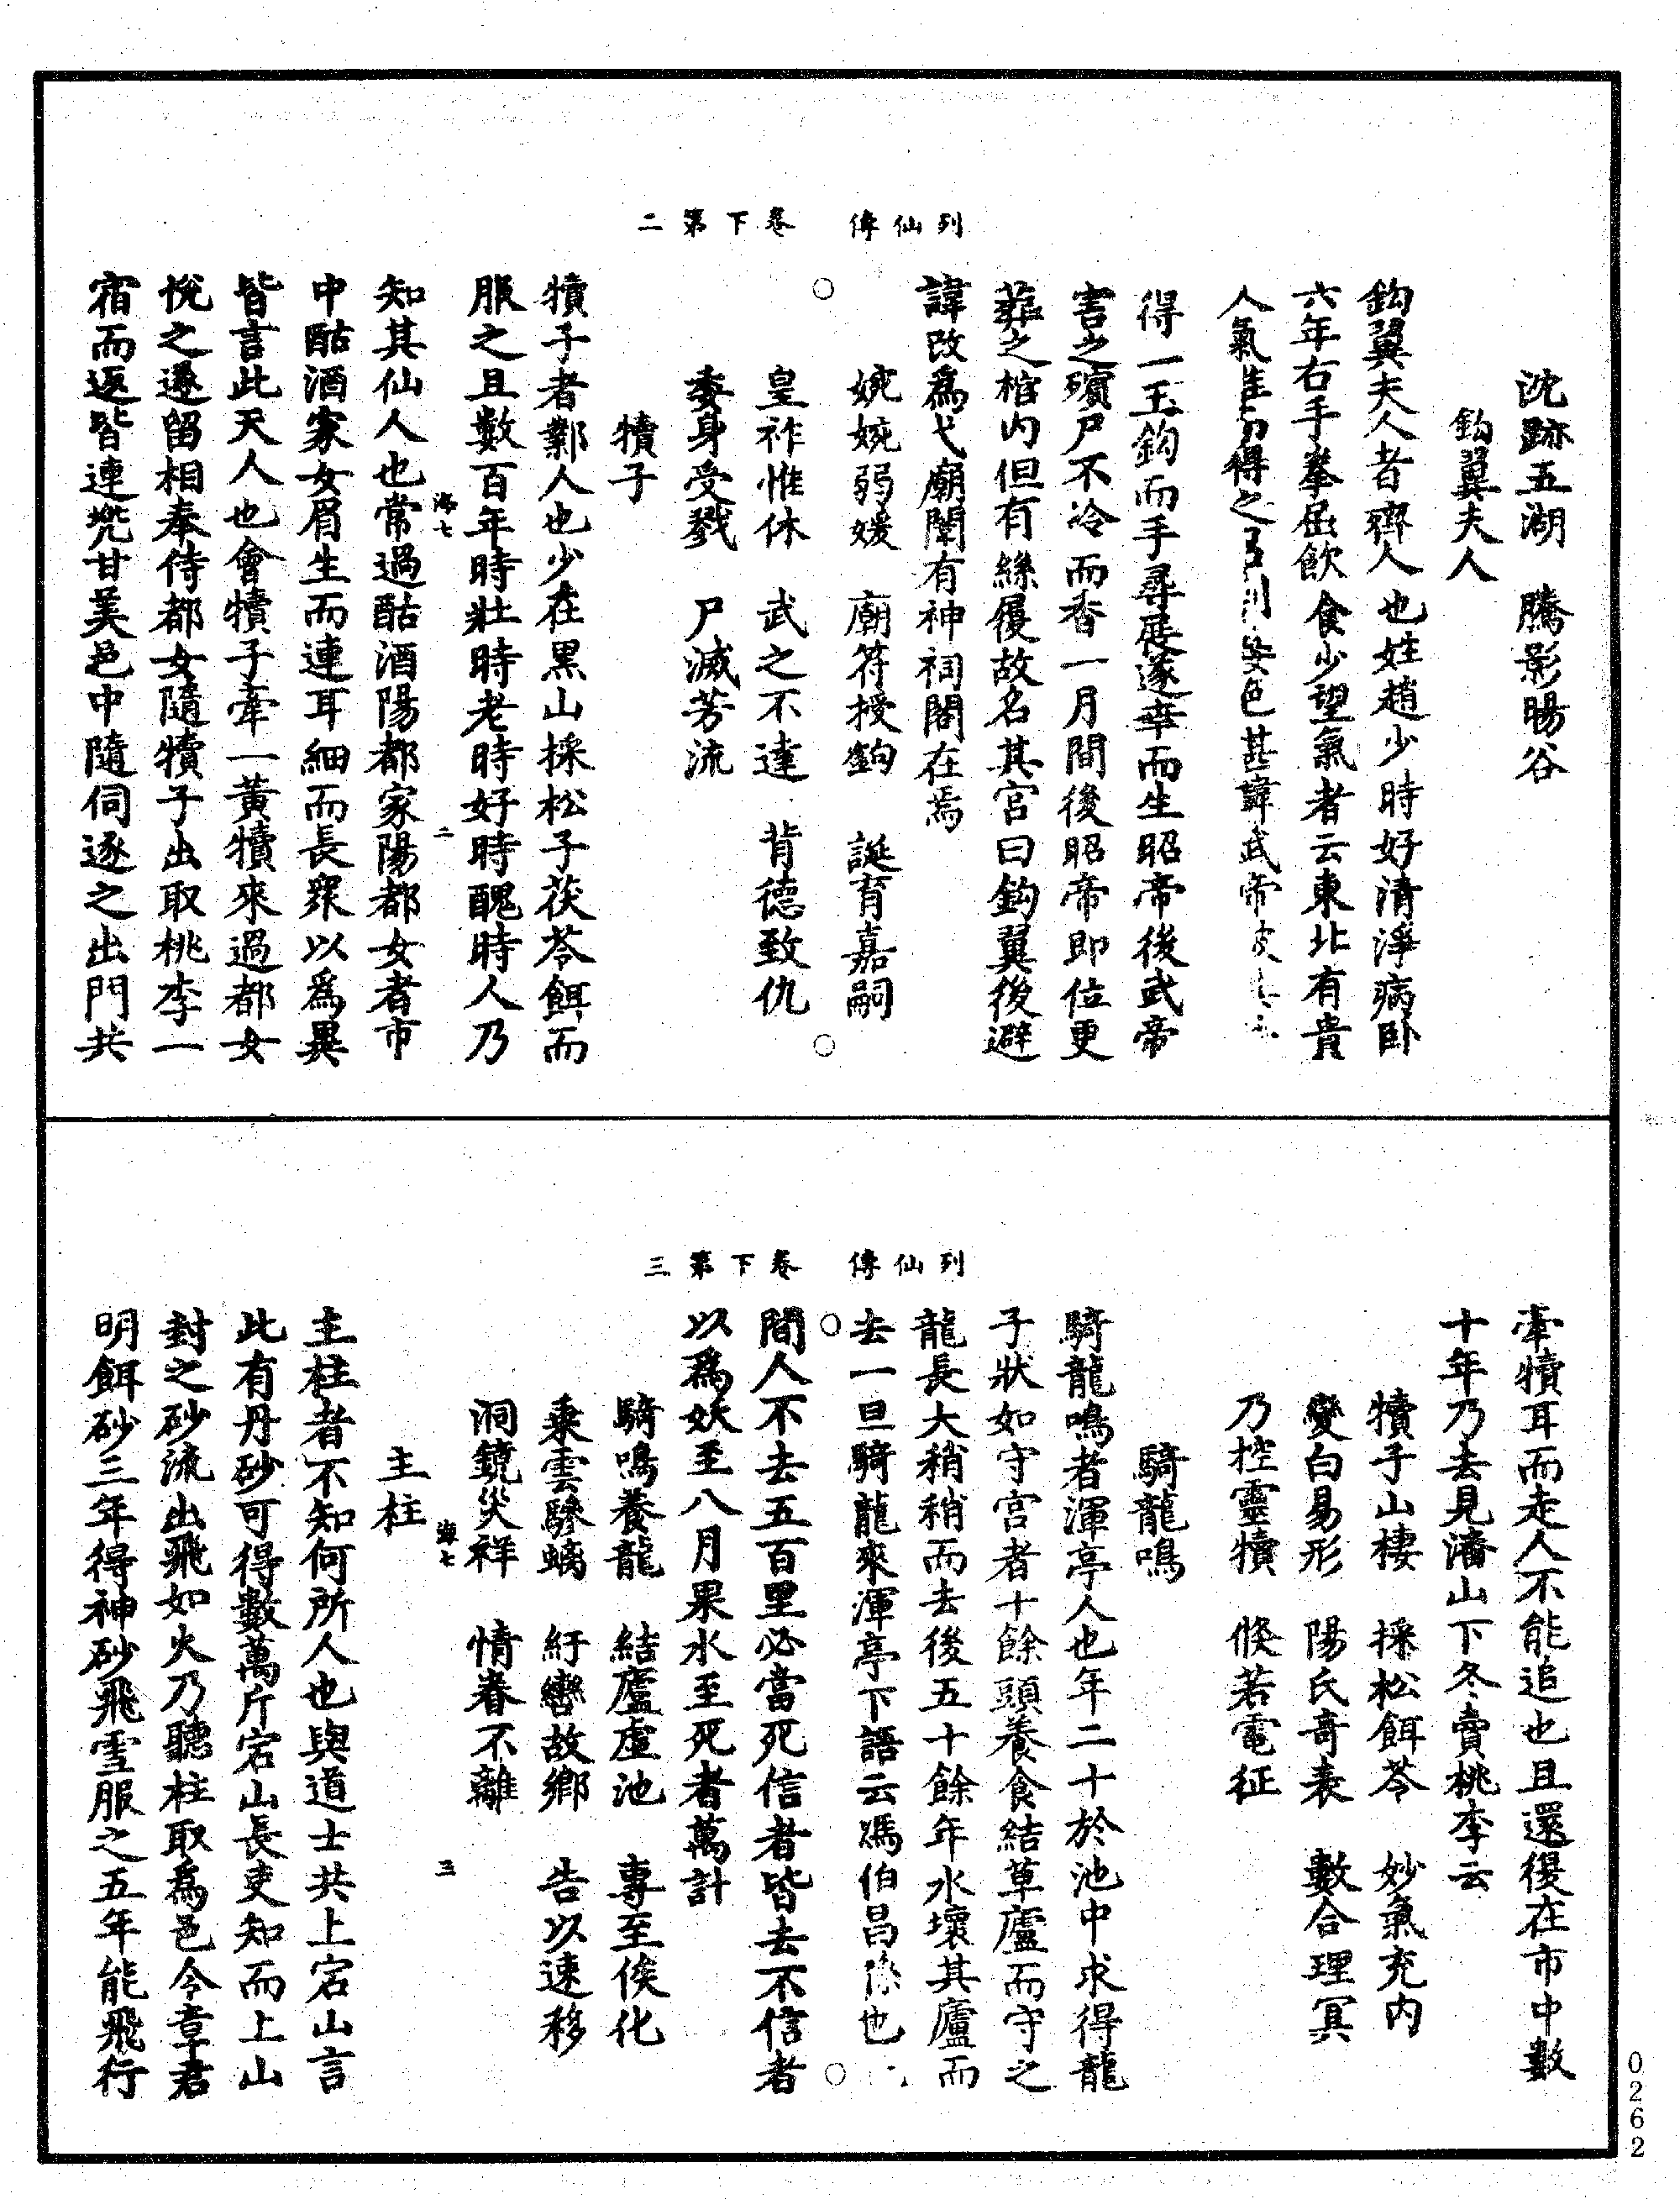 列仙傳　卷下第二
沈跡五湖　騰影暘谷
鈎翼夫人
鈎翼夫人者齊人也姓趙少時好清淨病卧
六年右手拳屈飲食少望氣者云東北有貴
人氣推而得之召到姿色甚諱武帝披其手
得一玉鈎而手尋展遂幸而生昭帝後武帝
害之殯尸不冷而香一月間後昭帝即位更
葬之棺内但有絲履故名其宮曰鈎翼後避
諱改爲弋廟闈有神祠閣在焉
婉婉弱媛　廟符授鈎　誕育嘉嗣
皇祚惟休　武之不達　背德致仇
委身受戮　尸滅芳流
犢子
犢子者鄴人也少在黒山採松子茯苓餌而
服之且數百年時壯時老時好時醜時人乃
海七　二
知其仙人也常過酤酒陽都家陽都女者市
中酤酒家女眉生而連耳細而長衆以爲異
皆言此天人也會犢子牽一黄犢來過都女
悅之遂留相奉侍都女隨犢子出取桃李一
宿而返皆連兠甘美邑中隨伺逐之出門共
列仙傳　卷下第三
牽犢耳而走人不能追也且還復在市中數
十年乃去見潘山下冬賣桃李云
犢子山棲　採松餌苓　妙氣充内
變白易形　陽氏奇表　數合理冥
乃控靈犢　倏若電征
騎龍鳴
騎龍鳴者渾亭人也年二十於池中求得龍
子狀如守宫者十餘頭養食結草廬而守之
龍長大稍稍而去後五十餘年水壞其廬而
去一旦騎龍來渾亭下語云馮伯昌孫也
間人不去五百里必當死信者皆去不信者
以爲妖至八月果水至死者萬計
騎鳴養龍　結廬虚池　專至俟化
乘雲驂螭　紆轡故鄉　告以速移
洞鏡災祥　情眷不離
海七　三
主柱
主柱者不知何所人也與道士共上宕山言
此有丹砂可得數萬斤宕山長吏知而上山
封之砂流出飛如火乃聽柱取爲邑令章君
明餌砂三年得神砂飛雪服之五年能飛行
0262